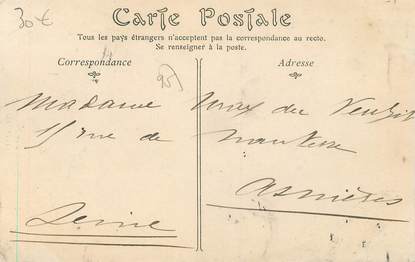 30€
Carte Postale
Tous les pays étrangers n'acceptent pas la correspondance au recto.
Se renseigner à la poste.
Correspondance
Adresse
Madame Max du Veuzit
15 rue de Nanterre
Asnières
Seine